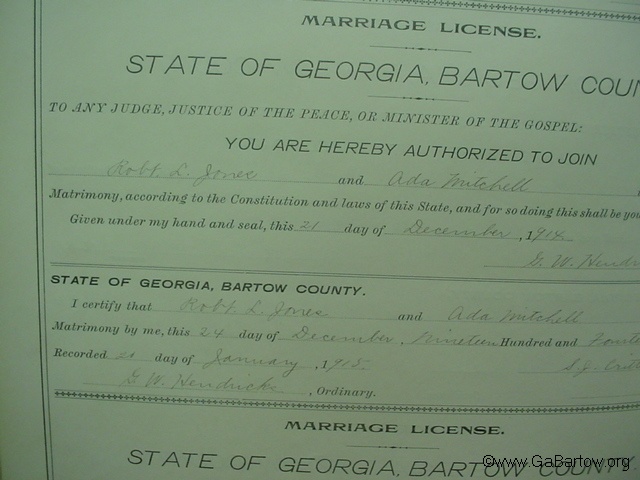 MARRIAGE LICENSE.
STATE OF GEORGIA, BARTOW COUN
TO ANY JUDGE, JUSTICE OF THE PEACE, OR MINISTER OF THE GOSPEL:
YOU ARE HEREBY AUTHORIZED TO JOIN
Robt. L. Jones and Ada Mitchell
Matrimony, according to the Constitution and laws of this State, and for so doing this shall be you
Given under my hand and seal, this 21 day of December, 1914
G. W. Hendri
STATE OF GEORGIA, BARTOW COUNTY.
I certify that Robt L. Jones and Ada Mitchell
Matrimony by me, this 24 day of December, Nineteen Hundred and Fourte
Recorded day of January, 1915
G. W. Hendricks, Ordinary.
MARRIAGE LICENSE.
STATE OF GEORGIA, BARTOW COUNTY.
©www.GaBartow.org